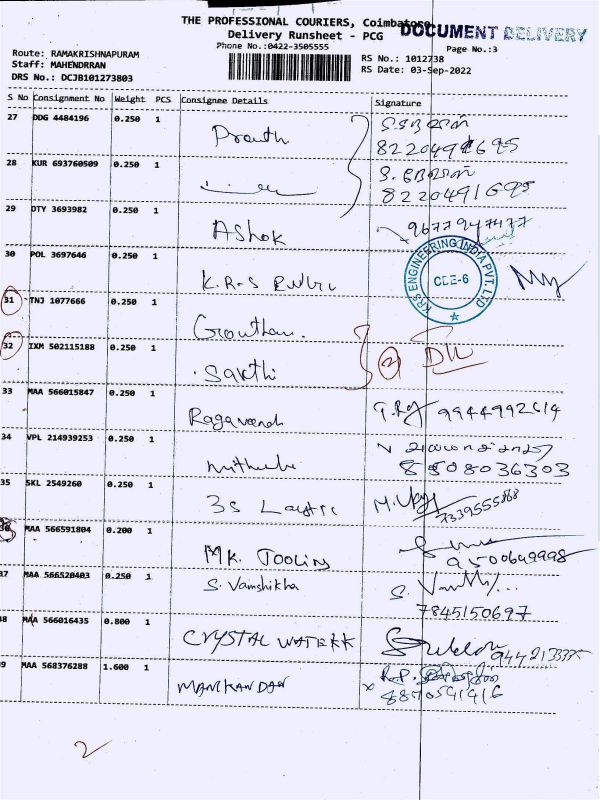 THE PROFESSIONAL COURIERS, Coimbatore
DOCUMENT DELIVERY
Delivery Runsheet - PCG
Phone No.:0422-3505555
Page No.:3
Route: RAMAKRISHNAPURAM
Staff: MAHENDRRAN
RS No.: 1012738
DRS No.: DCJB101273803
RS Date: 03-Sep-2022
S No Consignment No Weight PCS Consignee Details Signature
27 DDG 4484196 0.250 1
8220491695
28 KUR 693760509 0.250 1
8220491695
29 DTY 3693982 0.250 1 Ashok 9677947477
30 POL 3697646 0.250 1 K.R.S
KRS ENGINEERING INDIA PVT. LTD
CBE-6
31 TNJ 1077666 0.250 1 Gowtham.
32 IXM 502115188 0.250 1 Sakthi 2
33 MAA 566015847 0.250 1 Ragavendh 9944992614
34 VPL 214939253 0.250 1
8508036303
35 SKL 2549260 0.250 1 3S
7339555888
36 MAA 566591804 0.200 1 MK. TOOLING
9500649998
37 MAA 566520403 0.250 1 S. Vamshikha
7845150697
38 MAA 566016435 0.800 1 CRYSTAL
39 MAA 568376288 1.600 1 MANIKANDAN
8870541416
2